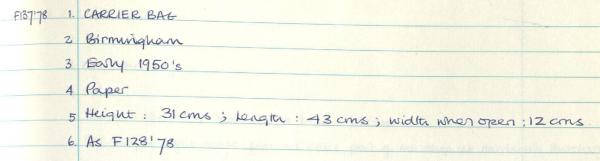 F137'78 1. CARRIER BAG
2 Birmingham
3 Early 1950's
4 Paper
5 Height : 31 cms ; Length : 43 cms ; width when open : 12 cms
6. As F128'78